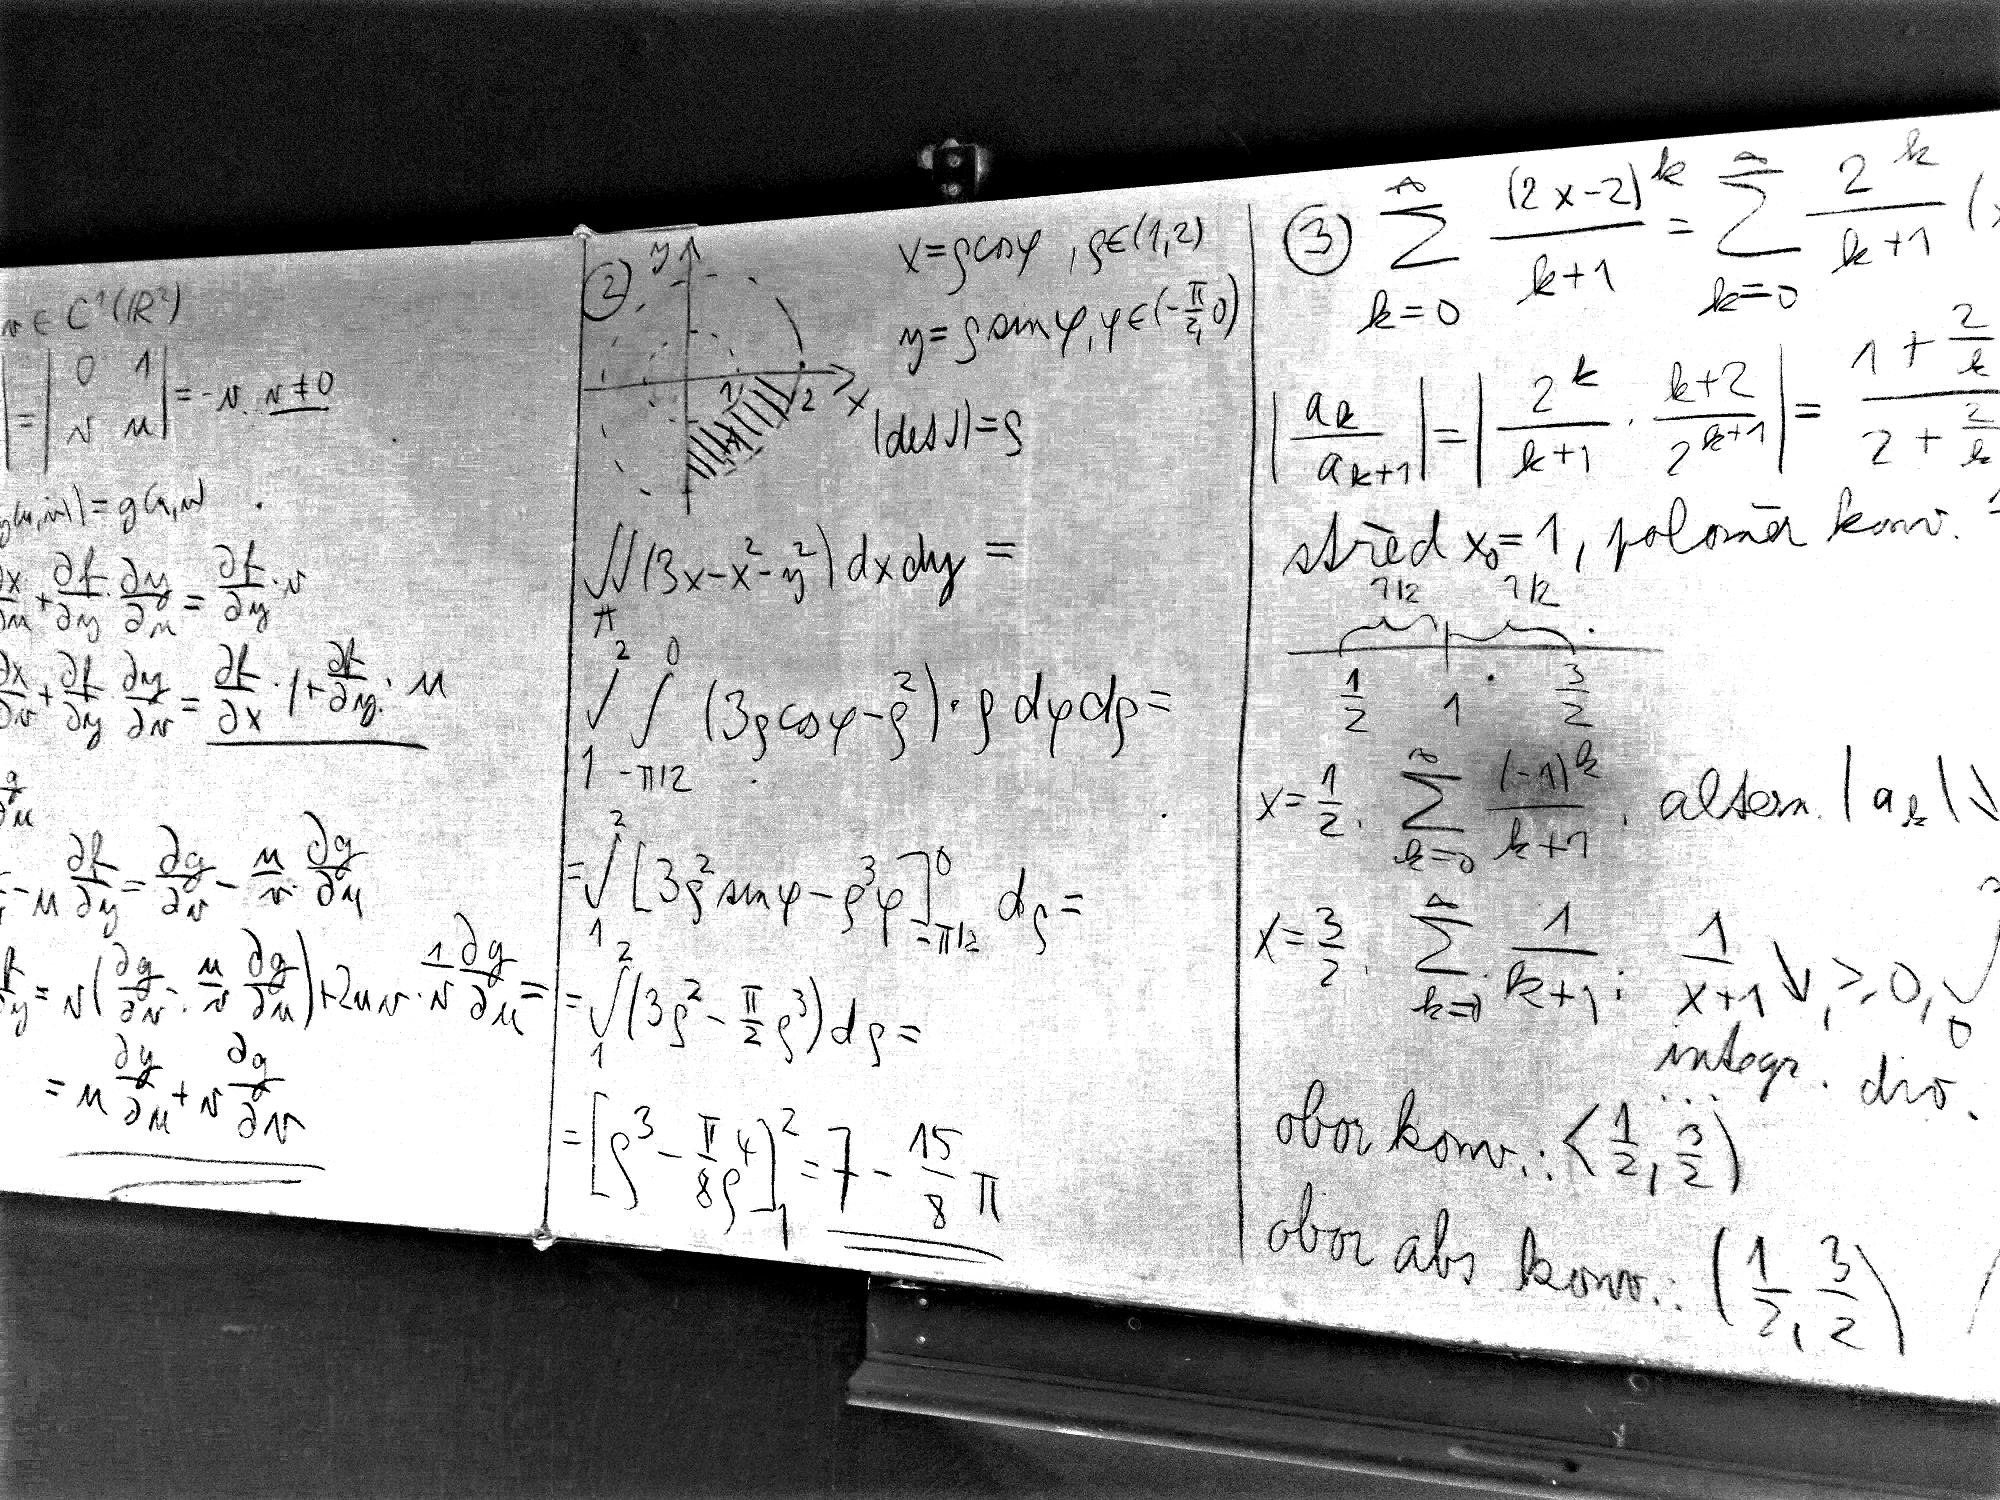 v ∈ C¹(ℝ²)
| = | 0 1 ; v u | = -v, v ≠ 0
g(u,v)) = g(u,v)
∂x/∂u + ∂f/∂y · ∂y/∂u = ∂f/∂y · v
∂x/∂v + ∂f/∂y · ∂y/∂v = ∂f/∂x · 1 + ∂f/∂y · u
- u ∂f/∂y = ∂g/∂v - u/v · ∂g/∂u
y = v (∂g/∂v - u/v ∂g/∂u) + 2uv · 1/v ∂g/∂u =
= u ∂g/∂u + v ∂g/∂v
②
y
1
2
x
A
x = ρ cos φ, ρ ∈ (1,2)
y = ρ sin φ, φ ∈ (-π/2, 0)
|det J| = ρ
∬_A (3x - x² - y²) dx dy =
∫_1^2 ∫_{-π/2}^0 (3ρ cos φ - ρ²) · ρ dφ dρ =
= ∫_1^2 [3ρ² sin φ - ρ³ φ]_{-π/2}^0 dρ =
= ∫_1^2 (3ρ² - π/2 ρ³) dρ =
= [ρ³ - π/8 ρ⁴]_1^2 = 7 - 15/8 π
③ ∑_{k=0}^∞ (2x-2)^k / (k+1) = ∑_{k=0}^∞ 2^k / (k+1) (x
|a_k / a_{k+1}| = |2^k / (k+1) · (k+2) / 2^{k+1}| = (1 + 2/k) / (2 + 2/k)
střed x₀ = 1, poloměr konv.
1/2 1/2
1/2 1 3/2
x = 1/2: ∑_{k=0}^∞ (-1)^k / (k+1), altern. |a_k| ↘
x = 3/2: ∑_{k=0}^∞ 1/(k+1); 1/(x+1) ↘, ≥ 0, ∫_0
integr. div.
obor konv.: ⟨1/2, 3/2)
obor abs konv.: (1/2, 3/2)